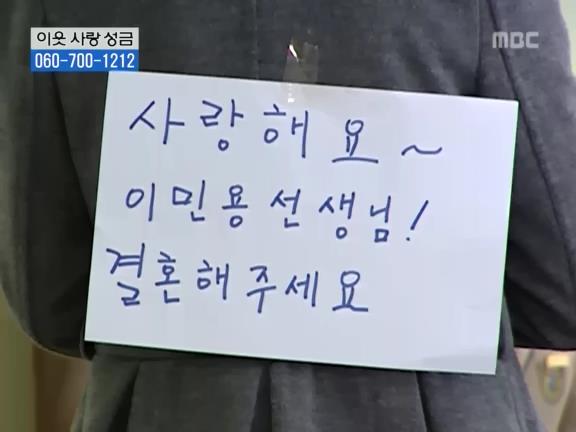 이웃 사랑 성금
060-700-1212
MBC
사랑해요~
이민용선생님!
결혼해주세요